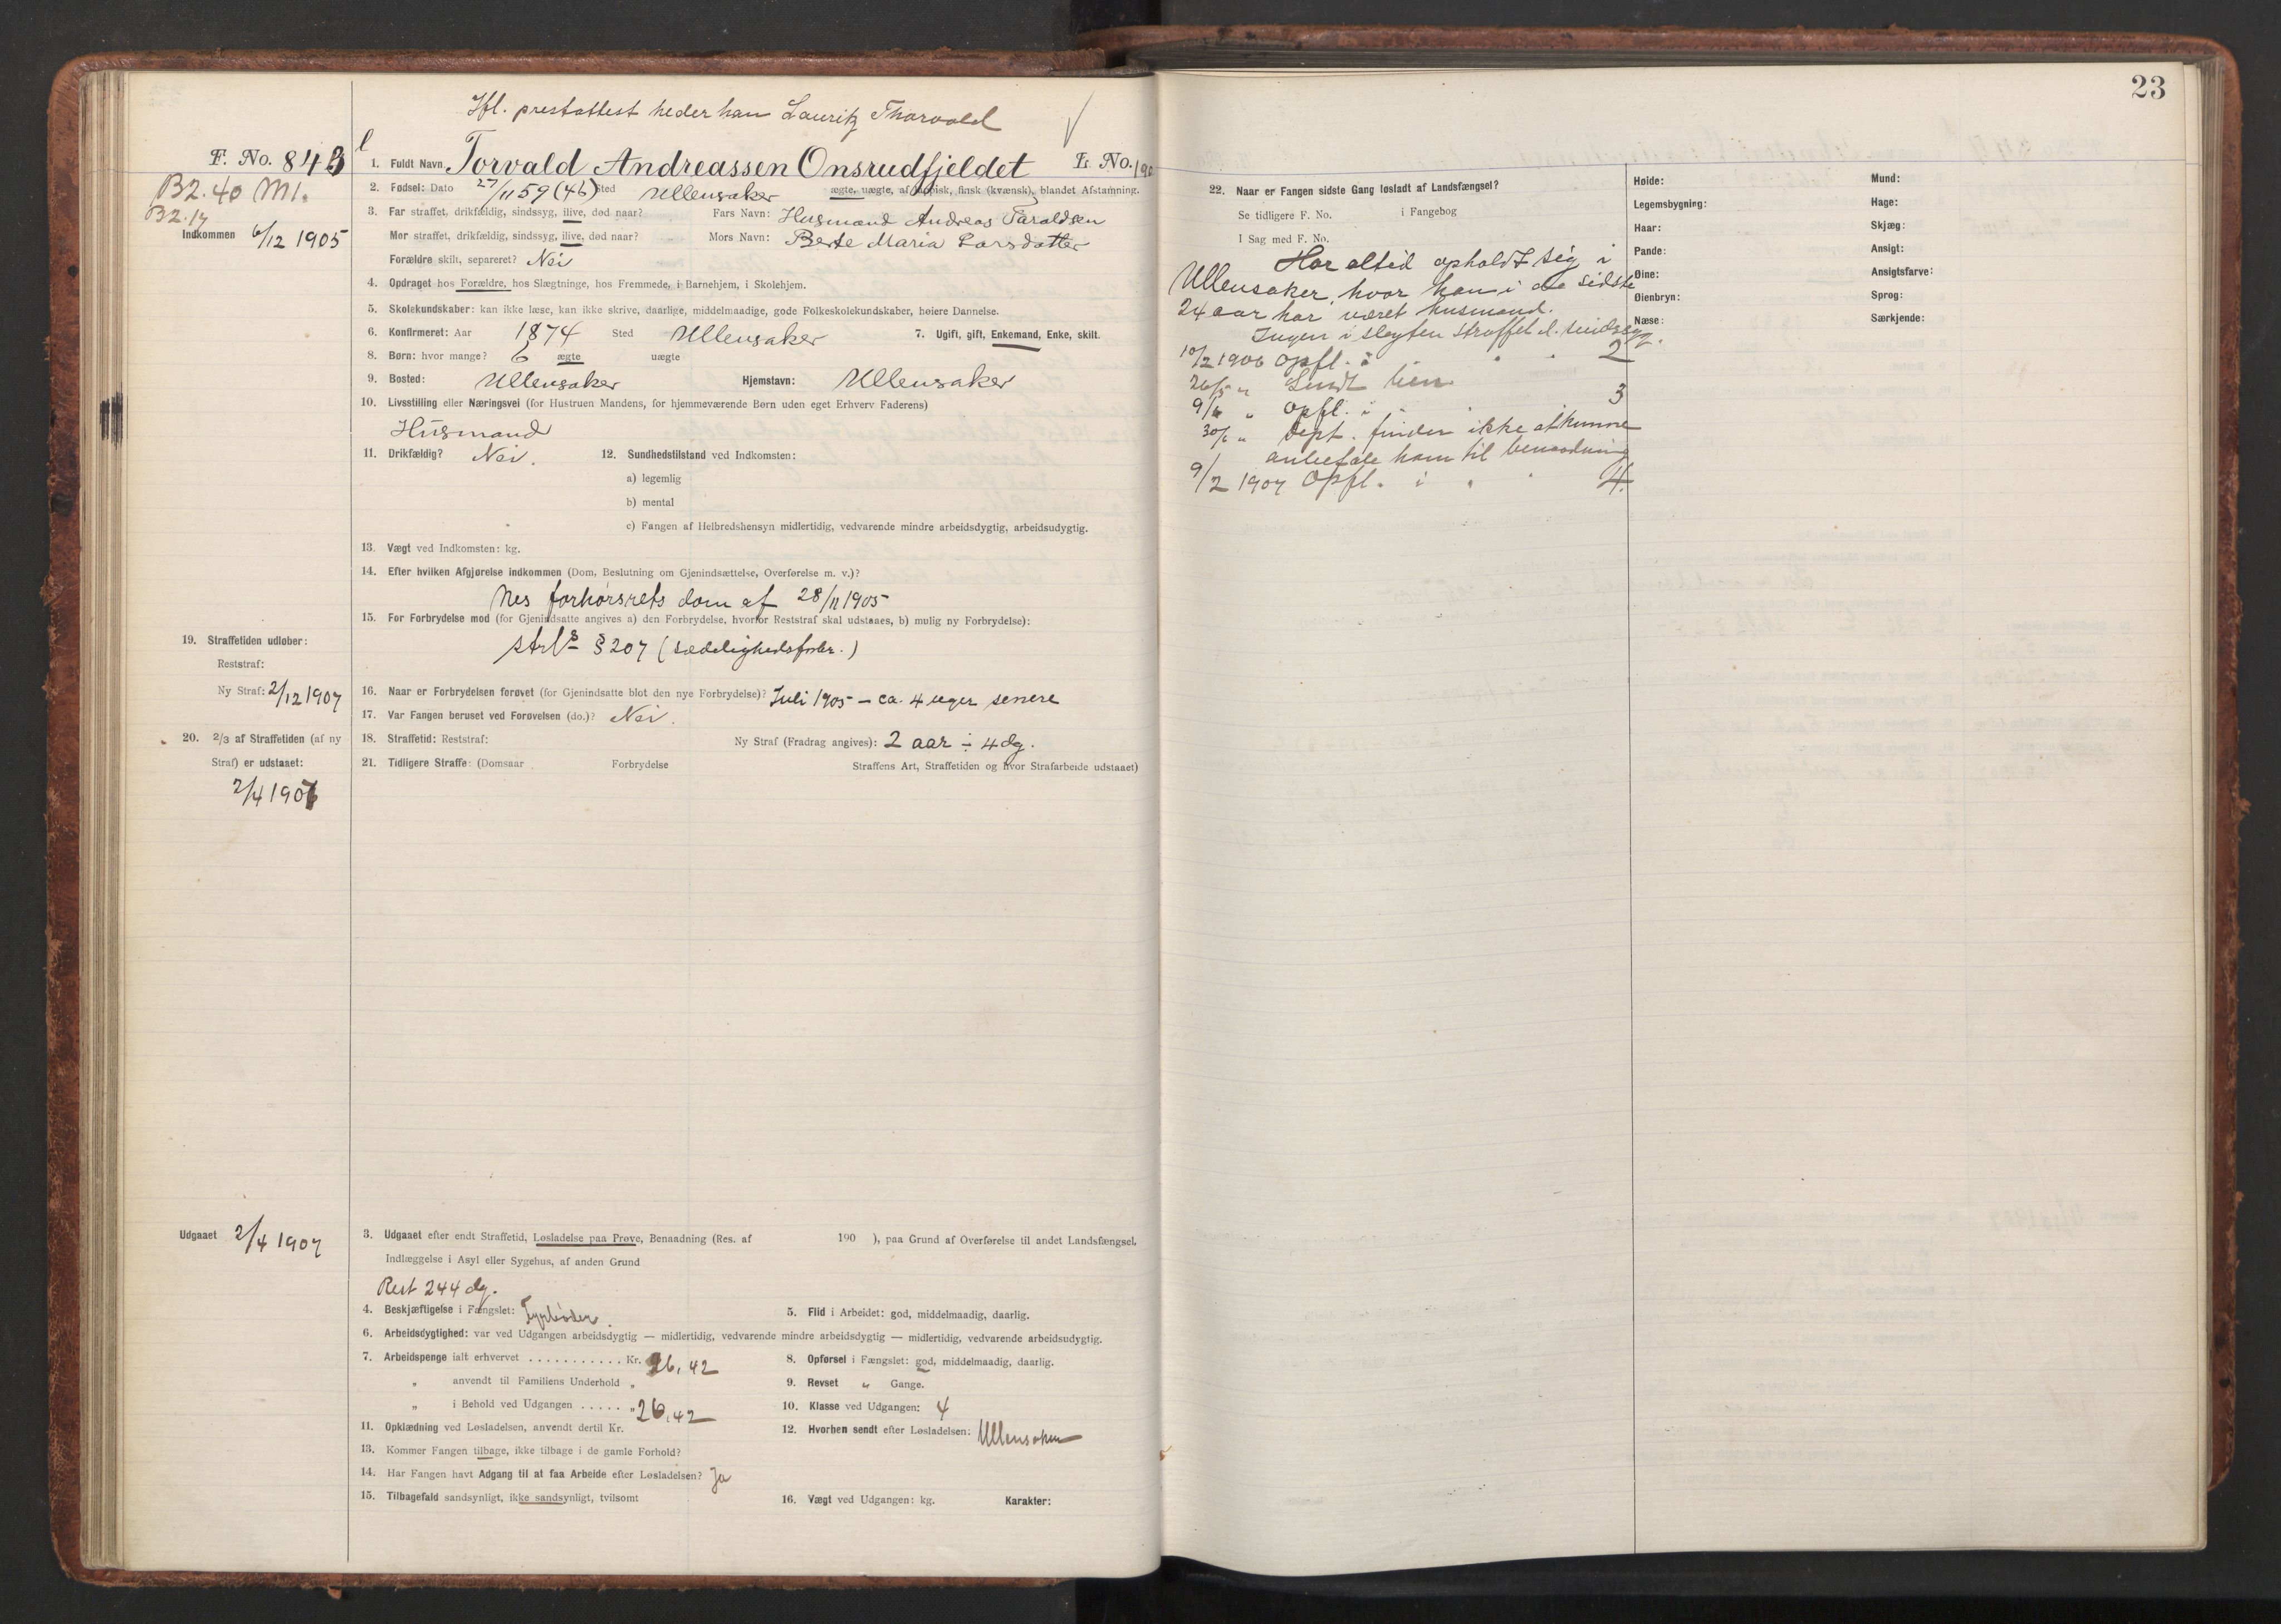 Ifl. prestattest heder han Lauritz Thorvald
F. No. 843
1. Fuldt Navn Torvald Andreassen Onsrudfjeldet L. No. 190
B2. 40 M1.
B2. 17
Indkommen 6/12 1905
2. Fødsel: Dato 27/11 59 (46) Sted Ullensaker ægte, uægte, af lappisk, finsk (kvænsk), blandet Afstamning.
3. Far straffet, drikfældig, sindssyg, ilive, død naar? Fars Navn: Husmand Andreas Taraldsen
Mor straffet, drikfældig, sindssyg, ilive, død naar? Mors Navn: Berte Maria Larsdatter
Forældre skilt, separeret? Nei
4. Opdraget hos Forældre, hos Slægtninge, hos Fremmede, i Barnehjem, i Skolehjem.
5. Skolekundskaber: kan ikke læse, kan ikke skrive, daarlige, middelmaadige, gode Folkeskolekundskaber, høiere Dannelse.
6. Konfirmeret: Aar 1874 Sted Ullensaker 7. Ugift, gift, Enkemand, Enke, skilt.
8. Børn: hvor mange? 6 ægte uægte
9. Bosted: Ullensaker Hjemstavn: Ullensaker
10. Livsstilling eller Næringsvei (for Hustruen Mandens, for hjemmeværende Børn uden eget Erhverv Faderens)
Husmand
11. Drikfældig? Nei. 12. Sundhedstilstand ved Indkomsten:
a) legemlig
b) mental
c) Fangen af Helbredshensyn midlertidig, vedvarende mindre arbeidsdygtig, arbeidsudygtig.
13. Vægt ved Indkomsten: kg.
14. Efter hvilken Afgjørelse indkommen (Dom, Beslutning om Gjenindsættelse, Overførelse m. v.)?
Nes forhørsrets dom af 28/11 1905
15. For Forbrydelse mod (for Gjenindsatte angives a) den Forbrydelse, hvorfor Reststraf skal udstaaes, b) mulig ny Forbrydelse):
strl § 207 (sædelighedsforbr.)
19. Straffetiden udløber:
Reststraf:
Ny Straf: 2/12 1907
16. Naar er Forbrydelsen forøvet (for Gjenindsatte blot den nye Forbrydelse)? Juli 1905 – ca. 4 uger senere
17. Var Fangen beruset ved Forøvelsen (do.)? Nei.
20. 2/3 af Straffetiden (af ny
Straf) er udstaaet:
2/4 1907
18. Straffetid: Reststraf: Ny Straf (Fradrag angives): 2 aar ÷ 4 dg.
21. Tidligere Straffe: (Domsaar Forbrydelse Straffens Art, Straffetiden og hvor Strafarbeide udstaaet)
Udgaaet 2/4 1907
3. Udgaaet efter endt Straffetid, Løsladelse paa Prøve, Benaadning (Res. af 190 ), paa Grund af Overførelse til andet Landsfængsel,
Indlæggelse i Asyl eller Sygehus, af anden Grund
Rest 244 dg.
4. Beskjæftigelse i Fængslet: 5. Flid i Arbeidet: god, middelmaadig, daarlig.
6. Arbeidsdygtighed: var ved Udgangen arbeidsdygtig — midlertidig, vedvarende mindre arbeidsdygtig — midlertidig, vedvarende arbeidsudygtig.
7. Arbeidspenge ialt erhvervet . . . . . . . . . . . Kr. 26,42 8. Opførsel i Fængslet: god, middelmaadig, daarlig.
" anvendt til Familiens Underhold " 9. Revset " Gange.
" i Behold ved Udgangen . . . . . " 26,42 10. Klasse ved Udgangen: 4
11. Opklædning ved Løsladelsen, anvendt dertil Kr. 12. Hvorhen sendt efter Løsladelsen: Ullensaker
13. Kommer Fangen tilbage, ikke tilbage i de gamle Forhold?
14. Har Fangen havt Adgang til at faa Arbeide efter Løsladelsen? Ja
15. Tilbagefald sandsynligt, ikke sandsynligt, tvilsomt 16. Vægt ved Udgangen: kg. Karakter:
23
22. Naar er Fangen sidste Gang løsladt af Landsfængsel?
Se tidligere F. No. i Fangebog
I Sag med F. No.
Har altid opholdt sig i
Ullensaker, hvor han i de sidste
24 aar har været husmand.
Ingen i slegten straffet el. sindssyg.
10/2 1906 opfl. i " " 2
26/5 " Sendt hien
9/6 " opfl. i " 3
30/6 " Dept. finder ikke at kunne
anbefale ham til benaadning
9/2 1907 Opfl. i " " 4.
Høide:
Legemsbygning:
Haar:
Pande:
Øine:
Øienbryn:
Næse:
Mund:
Hage:
Skjæg:
Ansigt:
Ansigtsfarve:
Sprog:
Særkjende: